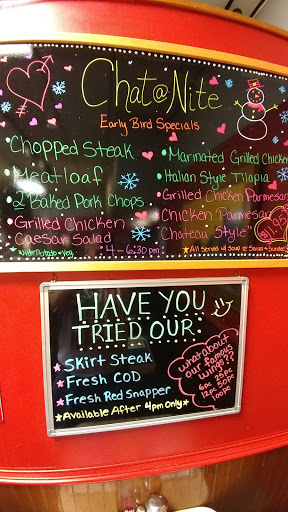 Chat@Nite
Early Bird Specials
Chopped Steak
Meatloaf
2 Baked Pork Chops
Grilled Chicken
Caesar Salad
*with Potato & Veg
4-6:30pm
Marinated Grilled Chicken
Italian Style Tilapia
Grilled Chicken Parmesan
Chicken Parmesan
"Chateau Style"
*All Served w/ Soup or Salad & Sundae
HAVE YOU
TRIED OUR:
*Skirt Steak
*Fresh COD
*Fresh Red Snapper
*Available After 4pm Only*
what about
our famous
wings??
6pc 25pc
12pc 50pc
100pc